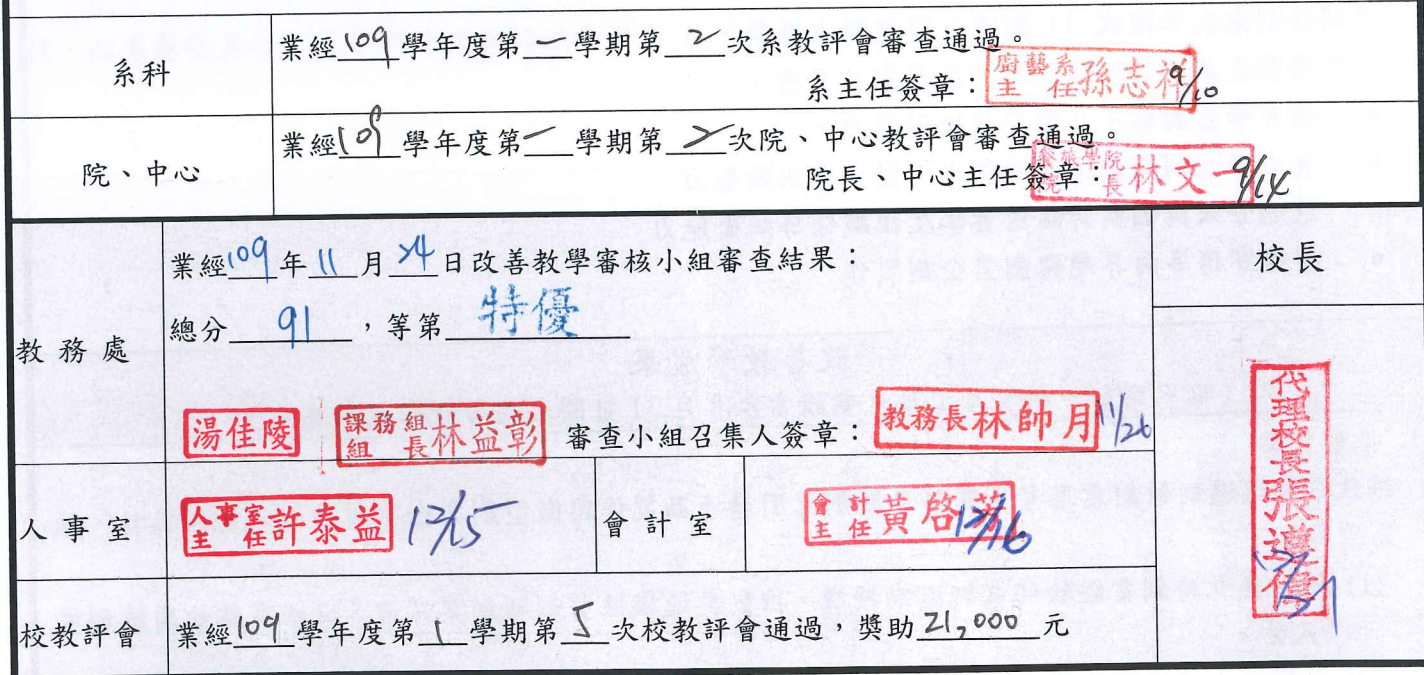 系科
業經109學年度第一學期第2次系教評會審查通過。
系主任簽章：廚藝系主任孫志祥 9/10
院、中心
業經109學年度第一學期第2次院、中心教評會審查通過。
院長、中心主任簽章：餐旅學院院長林文一 9/14
教務處
業經109年11月24日改善教學審核小組審查結果：
總分 91 ，等第 特優
湯佳陵 課務組組長林益彰 審查小組召集人簽章：教務長林帥月 11/26
人事室 人事室主任許泰益 12/15 會計室 會計主任黃啓 12/16
校教評會 業經109學年度第1學期第5次校教評會通過，獎助21,000元
校長
代理校長張遵偉
12/31